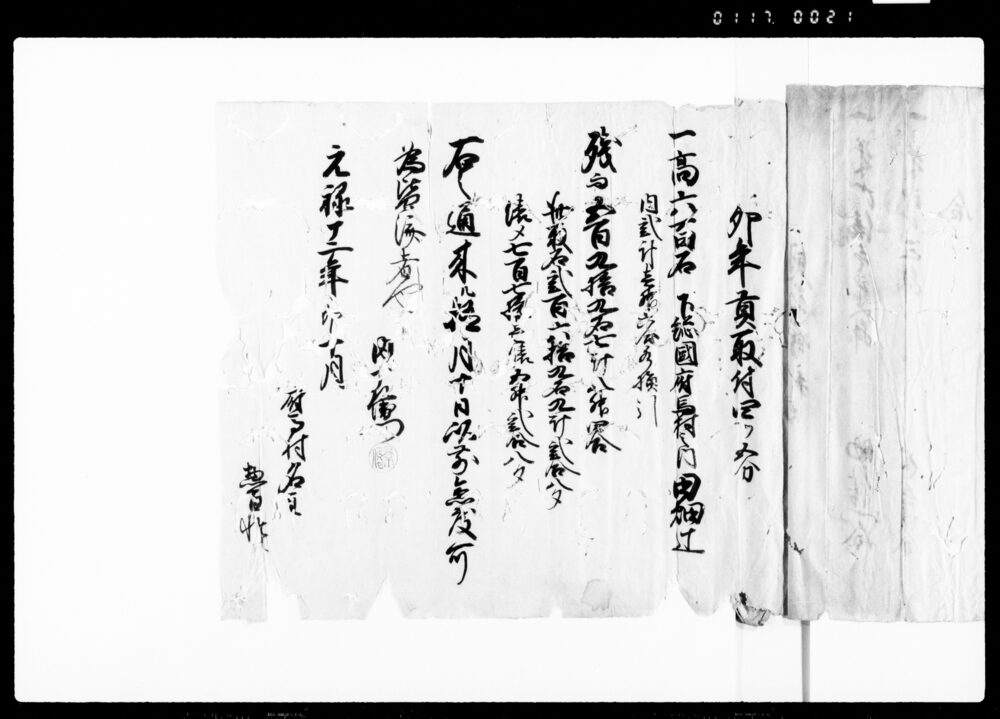 0117. 0021
卯年貢取付四ツ五分
一高六百石 下総國府馬村之内 田畑辻
内弐斗壱升六合 引
残而五百九拾九石七斗八升四合
此取石弐百六拾九石九斗弐合八夕
俵〆七百七拾壱俵 弐合八夕
右之通来ル極月十日以前急度可
為皆済者也
元禄十二年卯十月
府馬村名主
惣百性